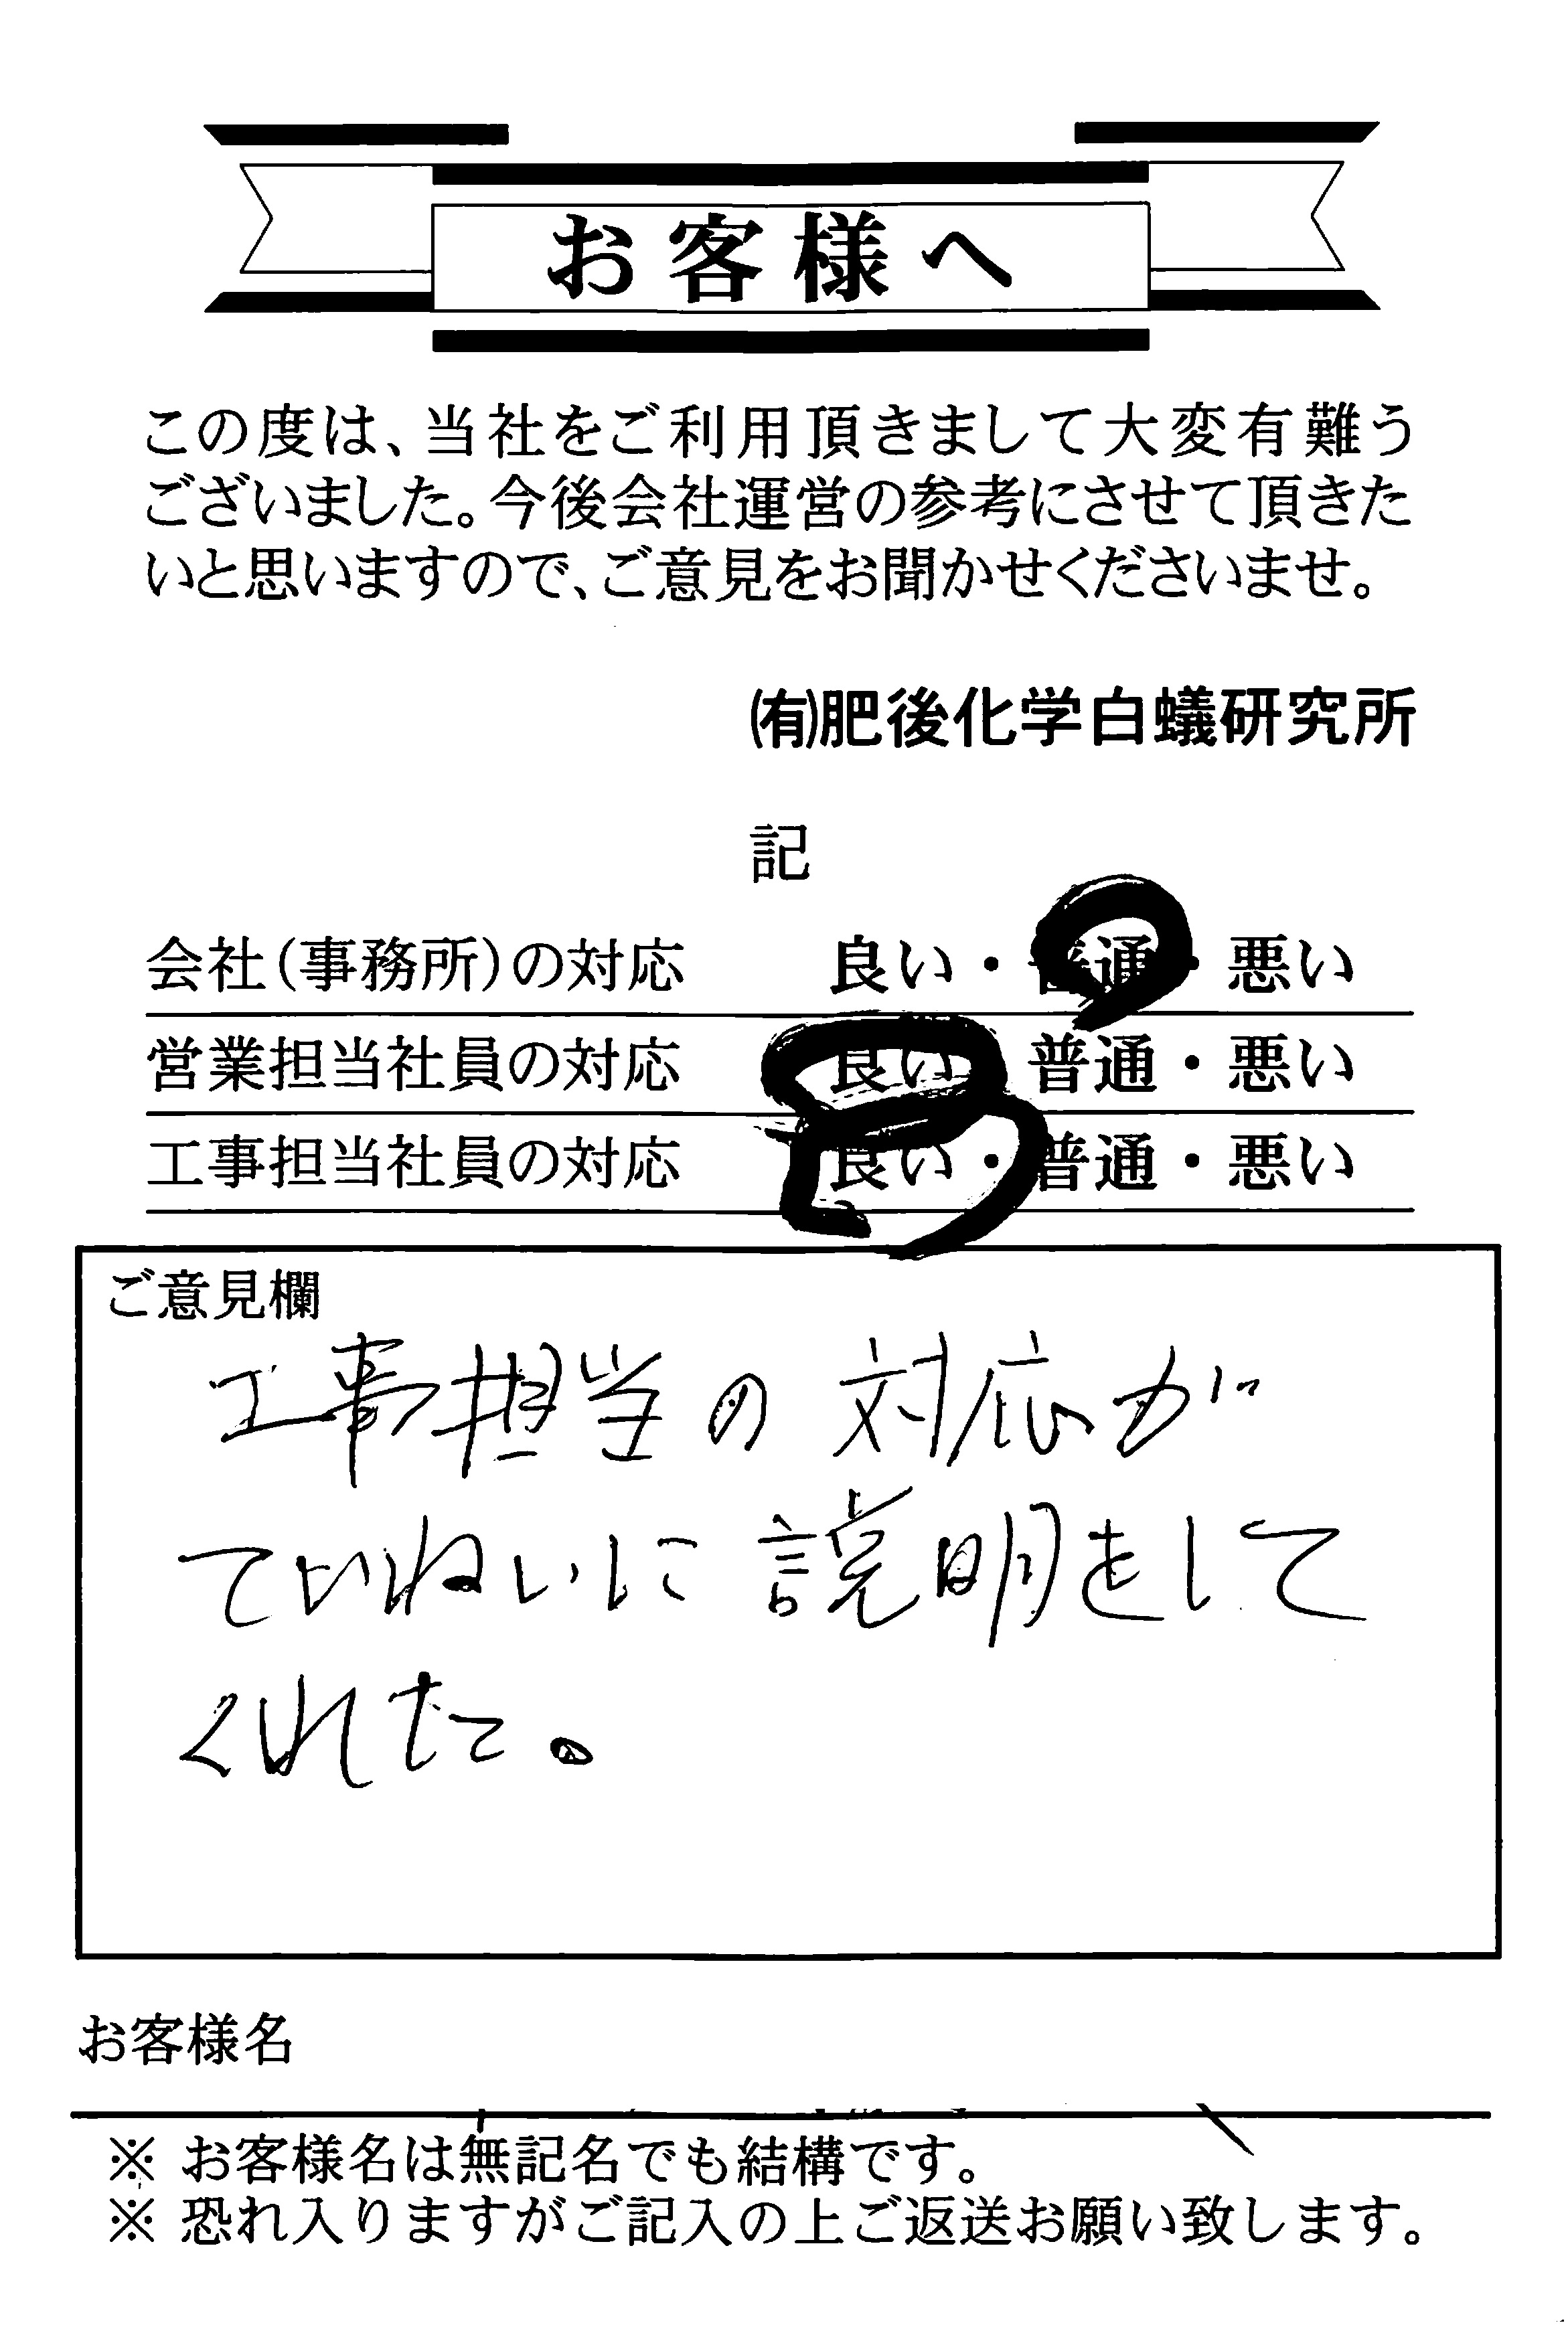 お客様へ
この度は、当社をご利用頂きまして大変有難う
ございました。今後会社運営の参考にさせて頂きた
いと思いますので、ご意見をお聞かせくださいませ。
㈲肥後化学白蟻研究所
記
会社(事務所)の対応 良い・普通・悪い
営業担当社員の対応 良い・普通・悪い
工事担当社員の対応 良い・普通・悪い
ご意見欄
工事担当の対応が
ていねいに説明をして
くれた。
お客様名
※ お客様名は無記名でも結構です。
※ 恐れ入りますがご記入の上ご返送お願い致します。